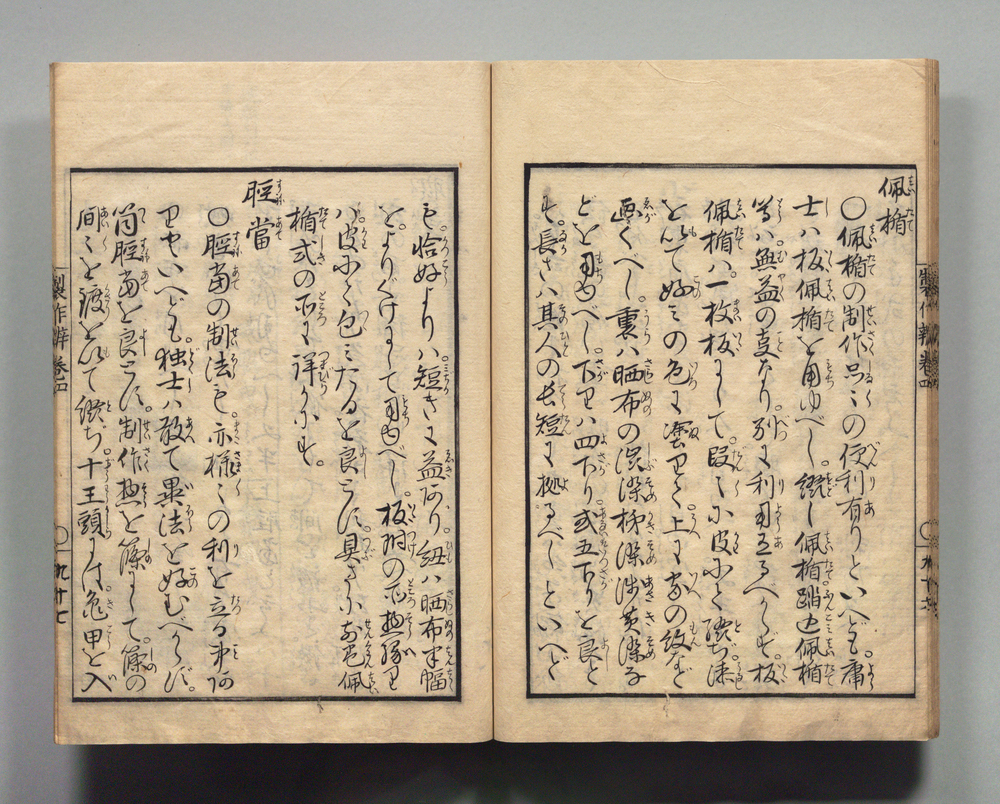 佩楯
○佩楯の制作品々の便利有りといへども。庸
士ハ板佩楯を用ゆべし。綴し佩楯踏込佩楯
等ハ無益の支なり。別に利用あるべからず。板
佩楯ハ。一枚板にして。段々小皮にて綴ぢ漆
をもて好ミの色に塗りて。上に家の紋など
画くべし。裏ハ晒布の渋染柿染浅黄染な
どを用ゆべし。下りハ四下り。或五下りを良と
す。長さハ其人の長短に拠るべしといへど
も恰好よりハ短きに益あり。紐ハ晒布半幅
をよりぐけにして用ゆべし。板羽の所惣縁り
ハ皮にて包ミたるを良とす。具さにハ佩
楯式の所に詳かにす。
脛當
○脛當の制法も。亦様々の利を立る事あ
りといへども。独士ハ敢て異法を好むべからず。
筒脛當を良とす。制作惣を篠にして。篠の
間々を渡をもて綴ち。十王頭に亀甲を入
製作辨巻四
○九十七